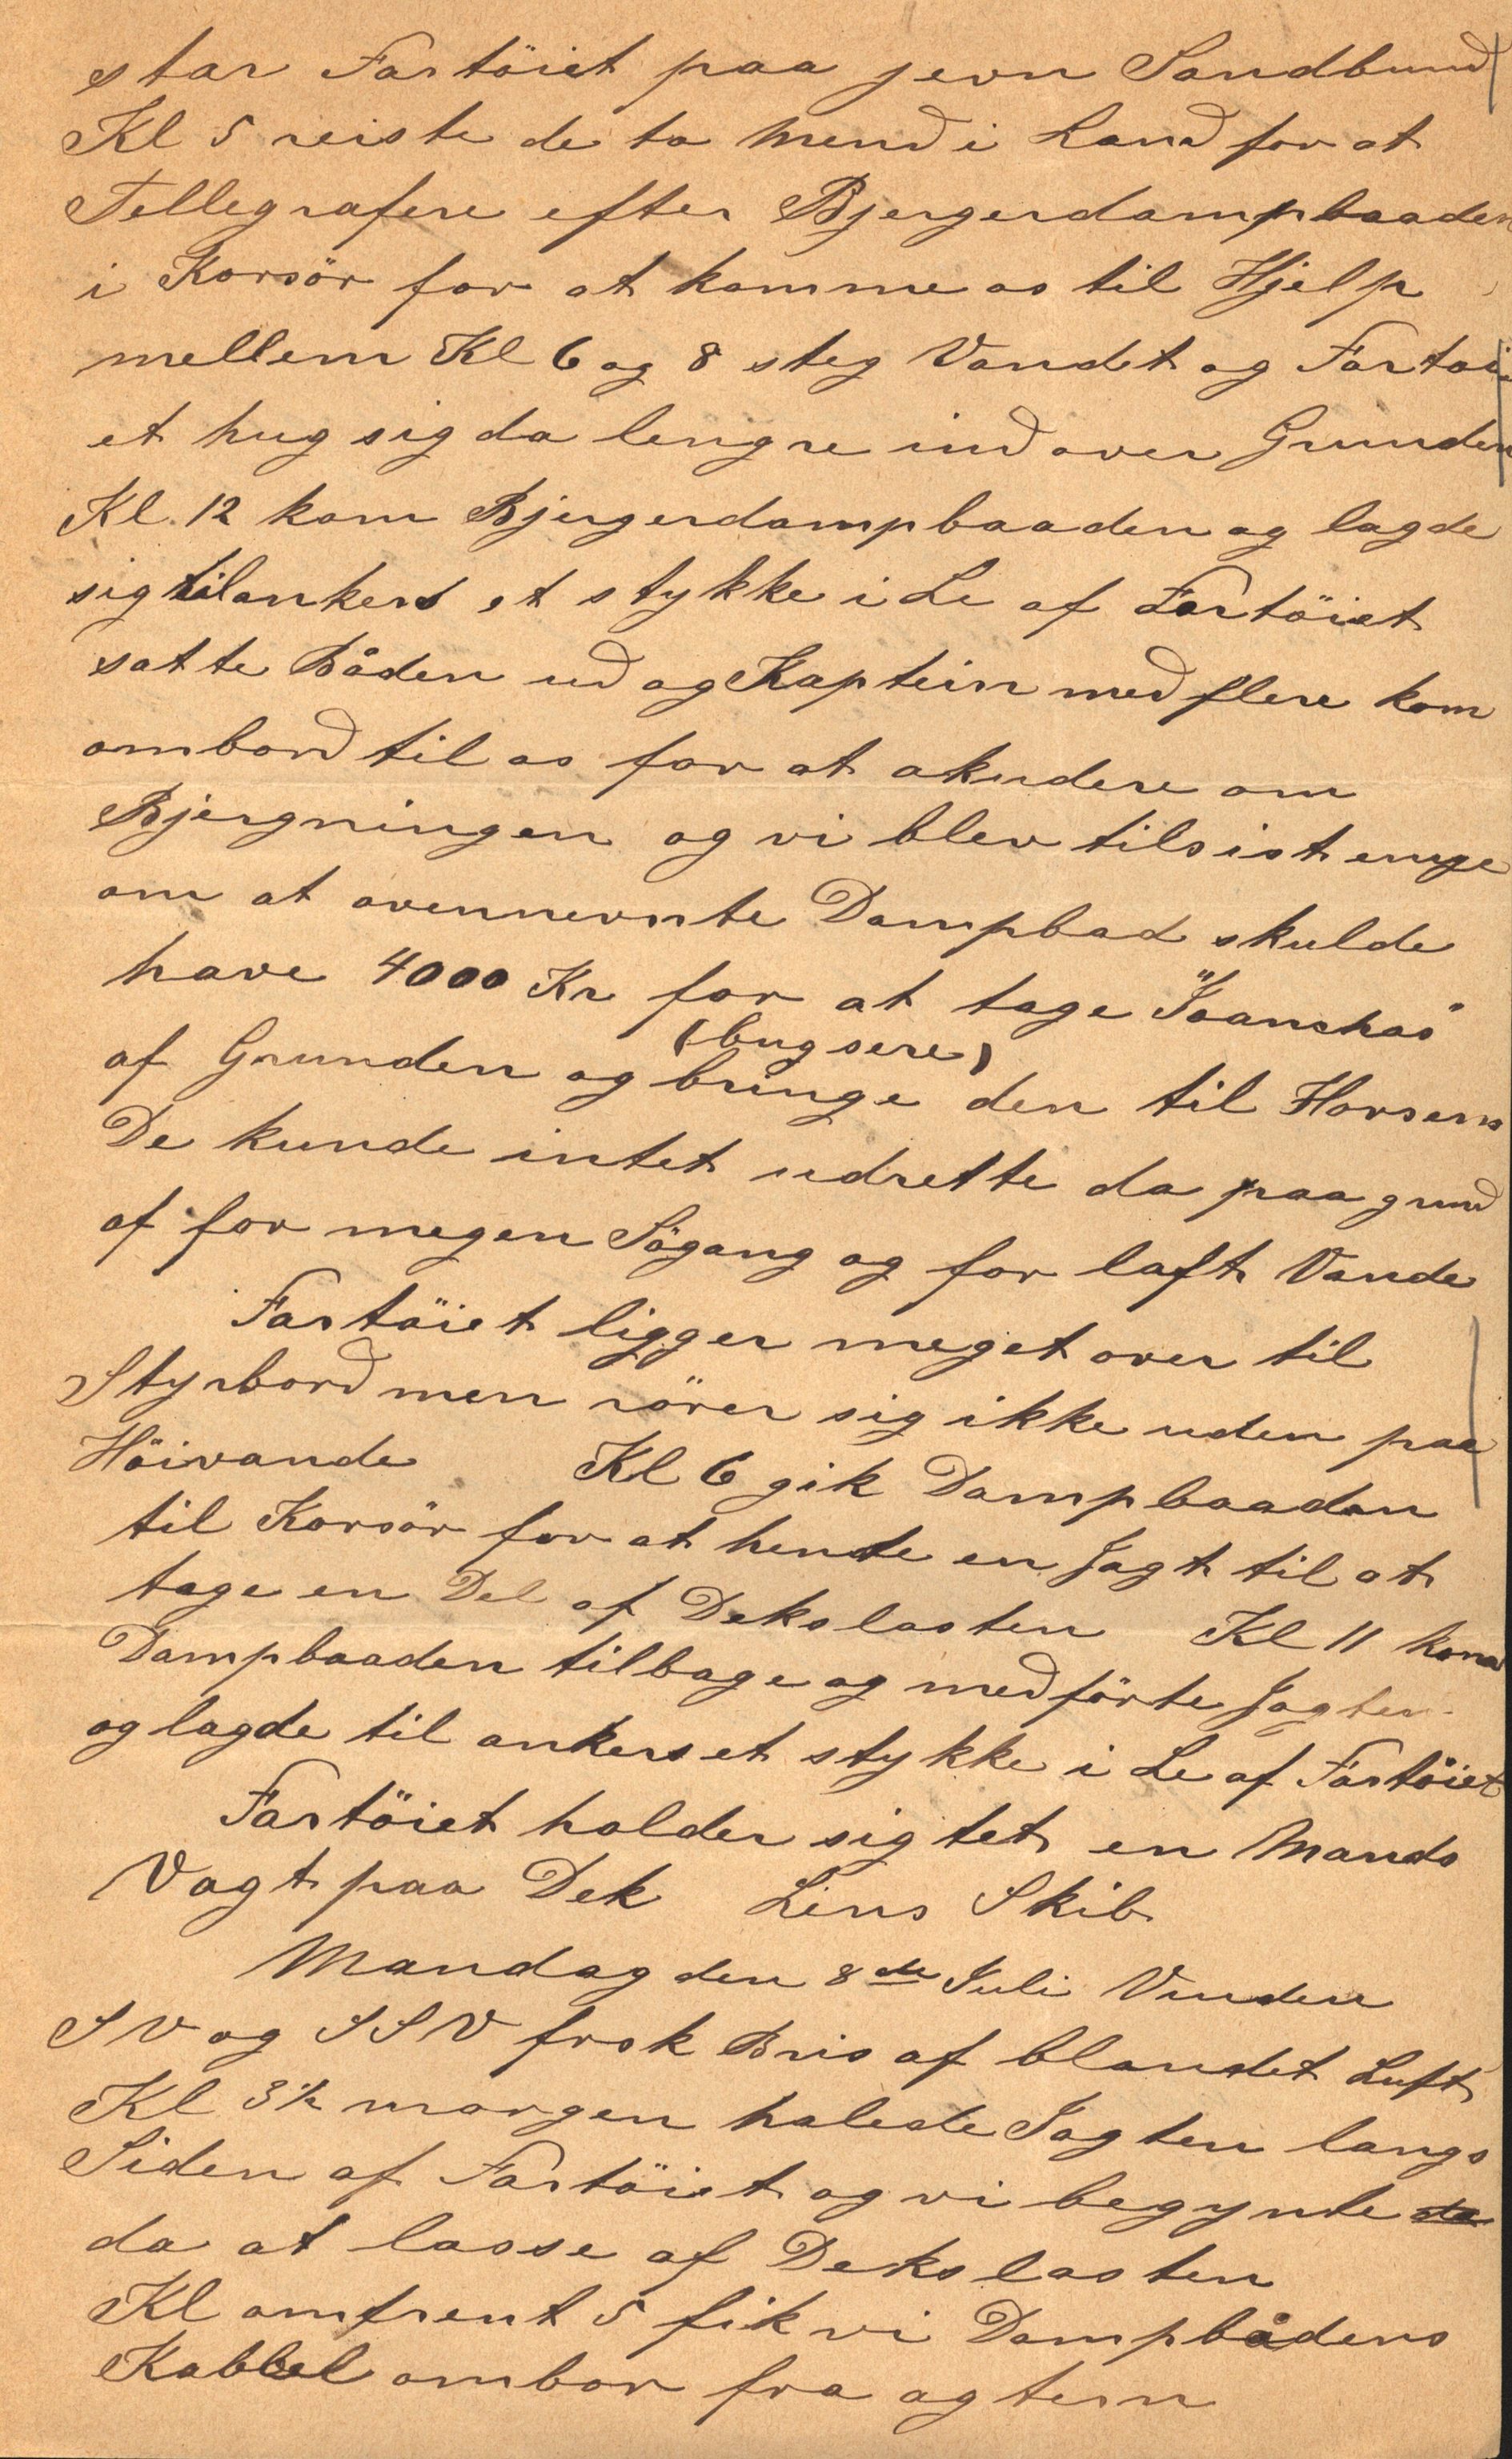 star Fartöiet paa jevn Sandbund
Kl 5 reiste de to Mend i Land for at
Tellegrafere efter Bjergerdampbaaden
i Korsör for at komme os til Hjelp
mellem Kl 6 og 8 steg Vandet og Fartöi
et hug sig da lengre ind over Grunden
Kl. 12 kom Bjergerdampbaaden og lagde
sig tilankers et stykke i Le af Fartöiet
satte Båden ud og Kaptein med flere kom
ombord til os for at akudere om
Bjergningen og vi blev tilsist enige
om at ovennevnte Dampbad skulde
have 4000 Kr for at tage "Joanchas"
(bugsere)
af Grunden og bringe den til Horsens
De kunde intet udrette da paa grund
af for megen Sögang og for laft Vande
Fartöiet ligger meget over til
Styrbord men rörer sig ikke uden paa
Höivande Kl 6 gik Dampbaaden
til Korsör for at hente en Jagt til at
tage en Del af Dekslasten Kl 11 kom
Dampbaaden tilbage og medförte Jagten
og lagde til ankers et stykke i Le af Fartöiet
Fartöiet holder sig tet en Mands
Vagt paa Dek Lens Skib
Mandag den 8de Juli Vinden
SV og SSV frsk Bris af blandet Luft
Kl 3½ morgen halede Jagten langs
Siden af Fartöiet og vi begynte da
da at losse af Dekslasten
Kl omtrent 5 fik vi Dampbådens
Kabbel ombor fra agtern